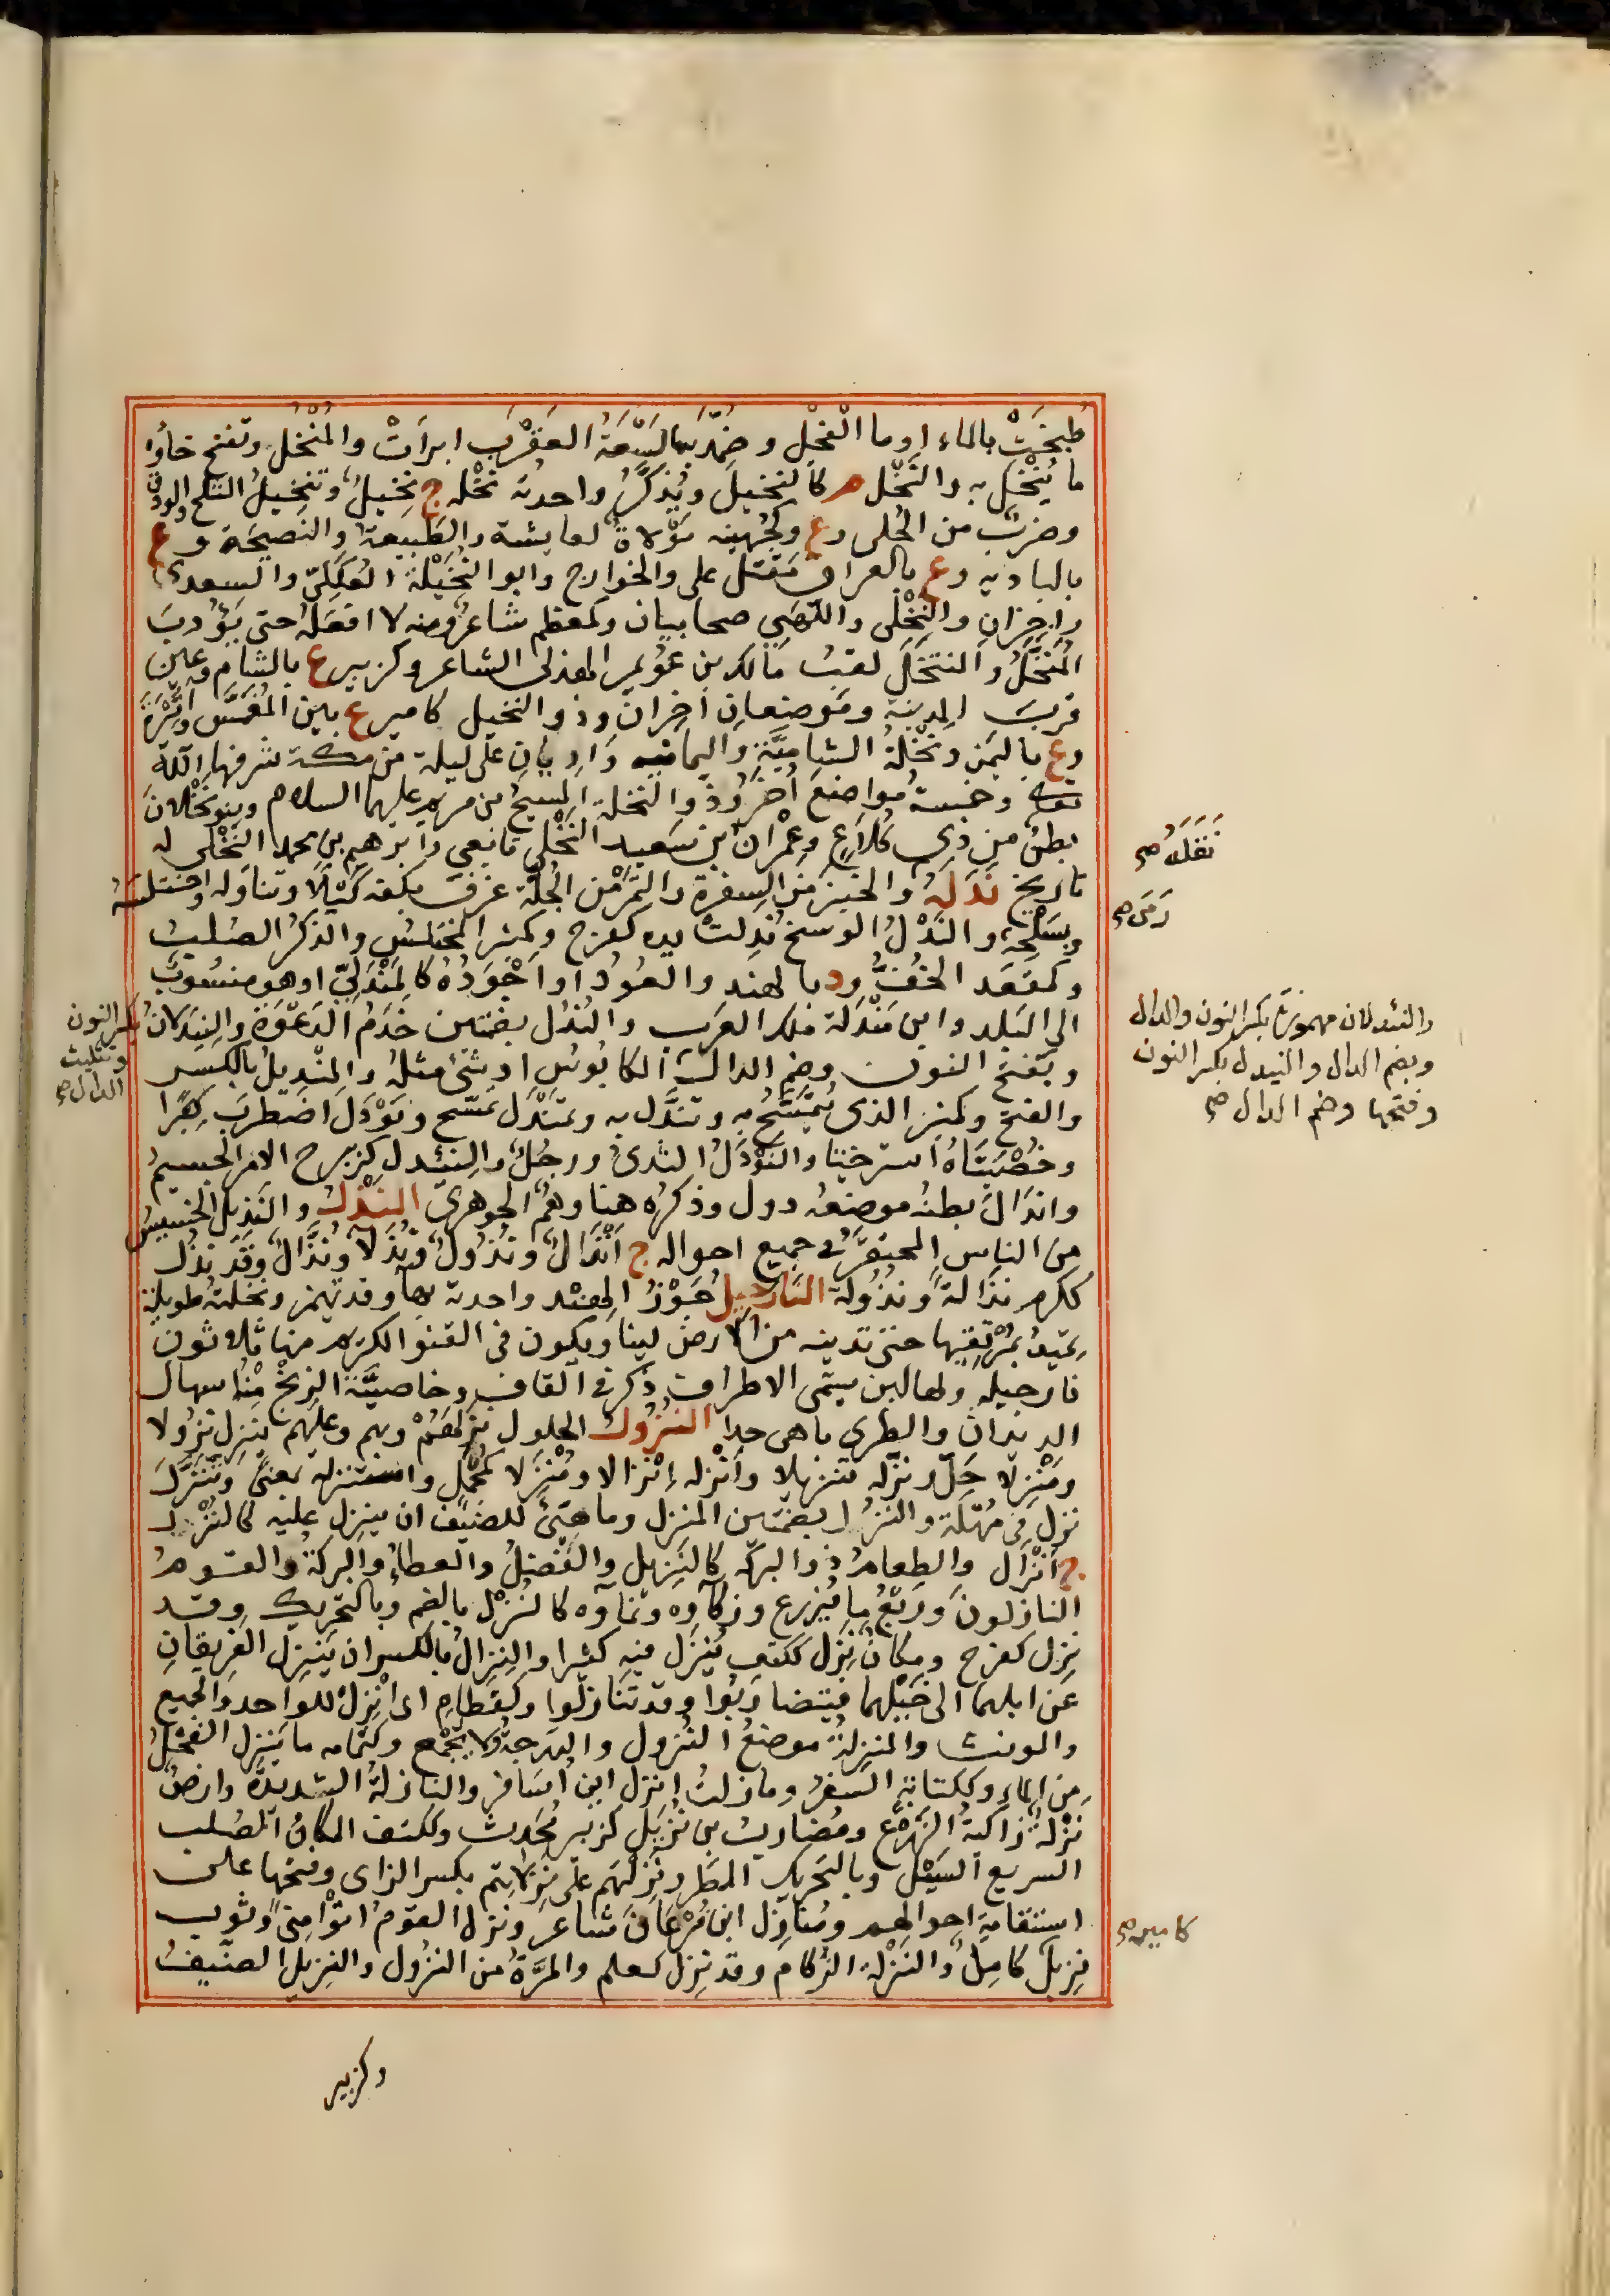 طُبِخَتْ بالماء او ما الْفجلِ وضُمِّدَ بها لَسْعَةُ العَقْرَبِ ابرأتْ والمُنْخُلُ وتفتح خاؤه
ما يُنْخَل به والنَّخْل م كالنخيل ويُذكَّرُ واحدته نَخْله ج نخيلٌ وتنخيلُ الثلج والودق
وضربٌ من الحُلى وع وكجُهينه مَوْلاةٌ لعايشة والطَبيعة والنصيحة وع
بالباديه وع بالعراق مَقْتَل على والخوارج وابو النُخَيْلة العُكلِىّ والسعدى
راجزان والنَّخْلى واللهَبِى صحابيان وكمعظم شاعرٌ ومنه لا افعَلهُ حتى يَؤُوبَ
المُنَخَّلُ والمتنخل لقبُ مالك بن عُوَيمر الهذلى الشاعر وكزبير ع بالشام وعين
قربَ المدينة ومَوضعان اخران وذو النخيل كامير ع بين المغمَّس واثْبَرَةَ
وع باليمن ونَخْلةُ الشاميَّةِ واليمانيه واديان على ليلة من مكة شرفها الله
تعالى وخمسةُ مواضعَ أُخَرُ وذو النخلة المسيحُ بن مريم عليهما السلام وبنو نَخْلانَ
بطنٌ من ذى كُلاَعٍ وعِمْران بن سَعيد النَّخْلى تابعى وابرهيم بن محمد النَّخْلى له
تاريخ نَدَلَهُ والخبزَ من السفرة والتَمْرَ من الجُلَّة غرفَ بكفه كُتَلاً وتناوله واختلسَهُ
وبسَلْحه والنَّدْلُ الوسخ نَدِلتْ يده كفرح وكمنبر المختلسُ والذكرُ الصُلبُ
وكمقعد الخُفُّ ود بالهند والعُودُ او اجْوَدُهُ كالمَنْدَلِىّ او هو منسُوبٌ
الى البَلد وابن مَنْدَلة ملك العرب والنُدُل بضمتين خَدَمُ الدَعْوَة والنَيدلانُ
وبفتح النون وضم الدال الكابوُس او شَىءٌ مثلُه والمِنْديلُ بالكسر
والفتح وكمنبر الذى يُتمَسَّحُ به وتندَّل به وتمَنْدَلَ تمسّح ونَوْدَلَ اضطربَ كِبَرًا
وخُصْيَتَاهُ استرختا والنَوْدَلُ الثدىُ ورجُلٌ والنِئْدل كزبرج الامر الجسيمُ
واندَالَ بطنهُ موضعُه دول وذكرُه هنا وهَمٌ للجوهرىّ النَّذْلُ والنَذيلُ الخسيسُ
من الناس المحتَقَرُ فى جميع احواله ج أَنْذَالٌ ونُذُولٌ ونُذَلاءُ ونُذَّالٌ وقد نذُل
ككرم نذالةً ونُذُولة النارجيل جَوْزُ الهند واحدته بهاءٍ وقد تهمز ونخلتهُ طويلة
تميدُ بمُرْتقيها حتى تدنيه من الارض لينا ويكون فى القنو الكريم منها ثلاثون
نارجيله ولها لبن يسمى الاطراق ذكر فى القاف وخاصيَّة الزنخ منها اسهال
الديدان والطرى باهى جدا النُزُولُ الحلول نزلهُمْ وبهم وعليهم ينزل نزُولا
ومَنْزلا حَلَّ ونزّله تنزيلا وأنْزله إنْزالا ومُنْزَلا كمُجْمَلٍ واستنزله بمعنًى وتَنَزَّلَ
نزل فى مُهْلَة والنُزُل بضمتين المنزل وما هُيّئ للضَيْف ان ينزل عليه كالنُزْل
ج أنْزال والطعامُ ذو البركه كالنَزيل والفضلُ والعطاءُ والبركة والقوم
النازلونَ ورَيْعُ ما يُزرع وزكاؤه ونماؤه كالنُزْل بالضم وبالتحريك وقد
نزل كفرح ومكانٌ نزل ككتف يُنزَل فيه كثيرا والنزال بالكسر ان ينزل الفريقانِ
عن ابلهما الى خيْلهما فيتضاربُوا وقد تَنازلُوا وكقطامِ اى انْزلْ للواحد والجميع
والمونث والمنزلةُ موضعُ النُزول والدرجةُ ولا يُجْمَع وكثُمامه ما يُنْزِل الفَحْلُ
من الماء وككتابةٍ السفَرُ وما زلتُ انزل اى اُسَافر والنازلةُ الشديدةُ وارضٌ
نَزْلةٌ زاكيةُ الزرع ومُضارب بن نُزيَل كزبير مُحَدث وككتف المكانُ الصُلب
السريع السَيْل وبالتحريك المطَر وتركتُهُم على نزِلاتِهم بكسر الزاى وفتحها على
استقامة احوالهم ومُنازل ابن فُرْعانَ شاعر ونزل القومُ اتوْا مِنًى وثوب
نزيلٌ كامِلٌ والنَزْلة الزكام وقد نزل كعلم والمَرَّةُ من النزُول والنزيل الضَيف
نَقَلَهُ صح
رَمَى صح
والنئدلان مهموزة بكسر النون والدال
وبضم الدال والنيدل بكسر النون
وفتحها وضم الدال صح
بكسر النون
وتثليث
الدال صح
كامير صح
وكزبير